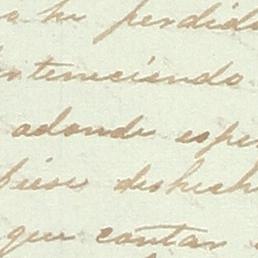 ha perdido
enterneciendo
adonde espe
biese deshech
que contar